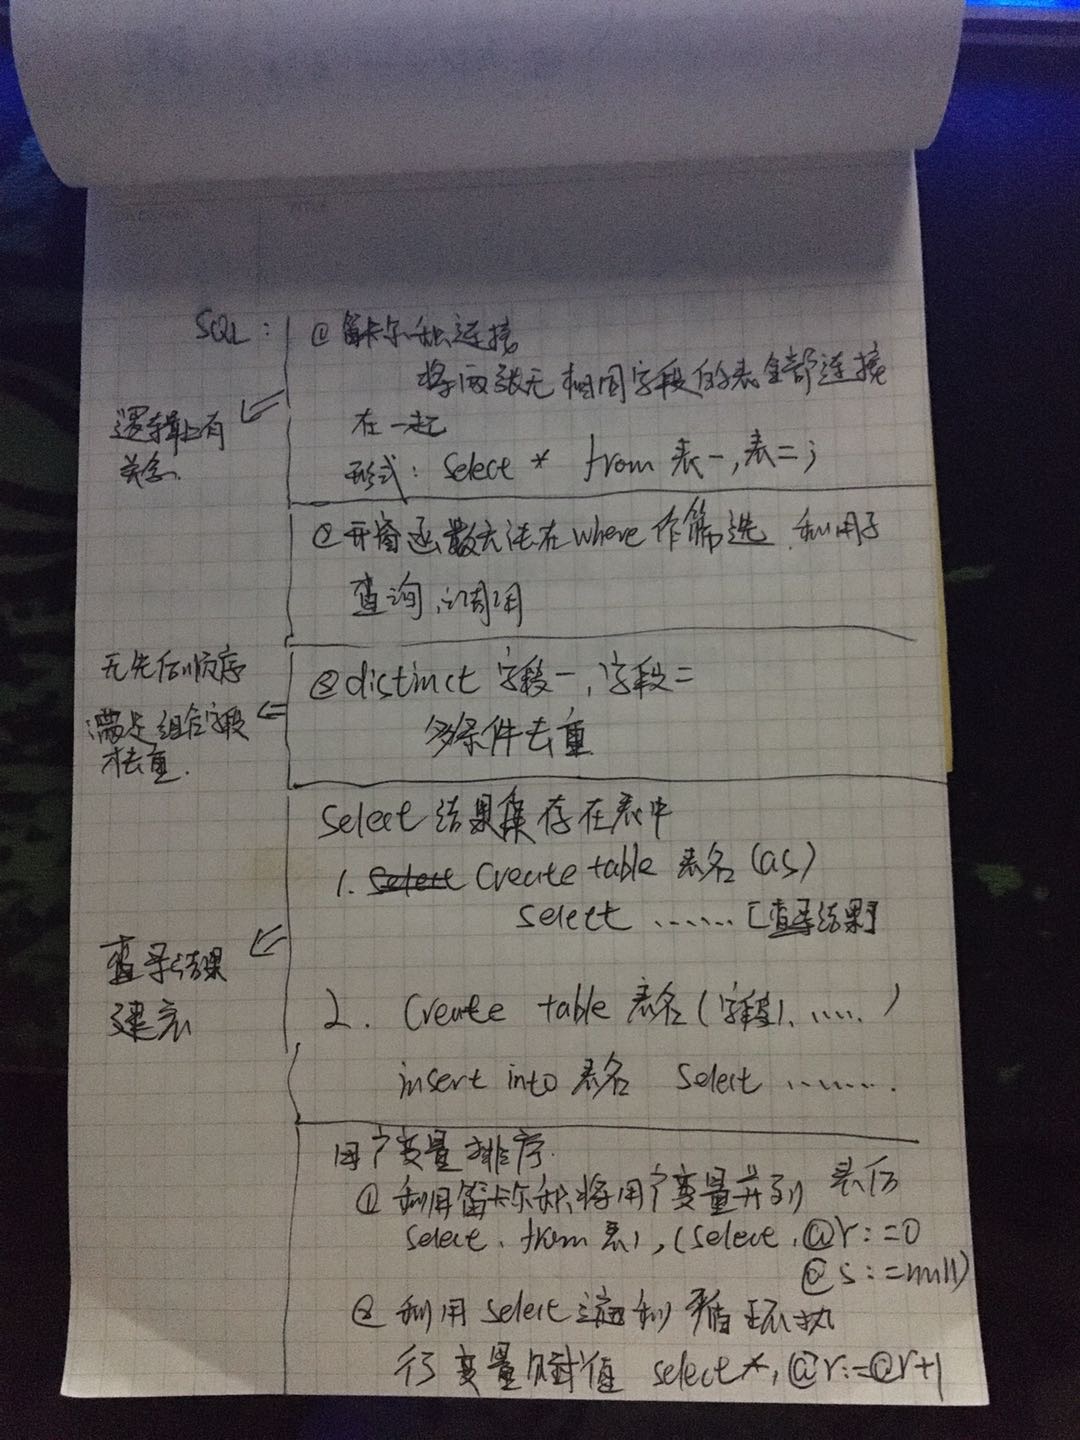 SQL:
① 笛卡尔积连接
将两张无相同字段的表全部连接
在一起
形式: Select * from 表一,表二;
逻辑上有
关念.
② 开窗函数无法在where作筛选,利用子
查询,调用
③ distinct 字段一,字段二
多条件去重
无先后顺序
满足组合字段
才去重.
Select 结果集存在表中
1. Create table 表名 (as)
select ...... [查寻结果]
查寻结果
建表
2. Create table 表名 (字段1, .....)
insert into 表名 Select ........
用户变量排序.
① 利用笛卡尔积将用户变量并到 表后
select . from 表1, (select . @r:=0
@s:=null)
② 利用 select 遍利 循环执
行变量赋值 select *, @r:=@r+1